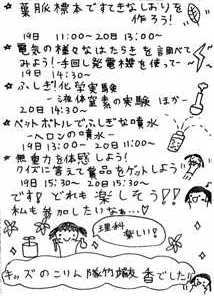 ☆葉脈標本ですてきなしおりを作ろう!
19日 11:00〜20日 13:00〜
☆電気の様々なはたらきを調べて
みよう!-手回し発電機を使って-
19日 14:30〜
☆ふしぎ化学実験
-液体窒素の実験 ほか-
20日 14:30〜
☆ペットボトルでふしぎな噴水
-ヘロンの噴水-
19日 13:00〜20日 11:00〜
☆無重力を体感しよう!
クイズに答えて賞品をゲットしよう!
19日 15:30〜 20日 15:30〜
です!どれも楽しそう!!
私も参加したいなぁ…♡
理科
楽しい!
キッズのこりん隊竹嫩 香でした!!